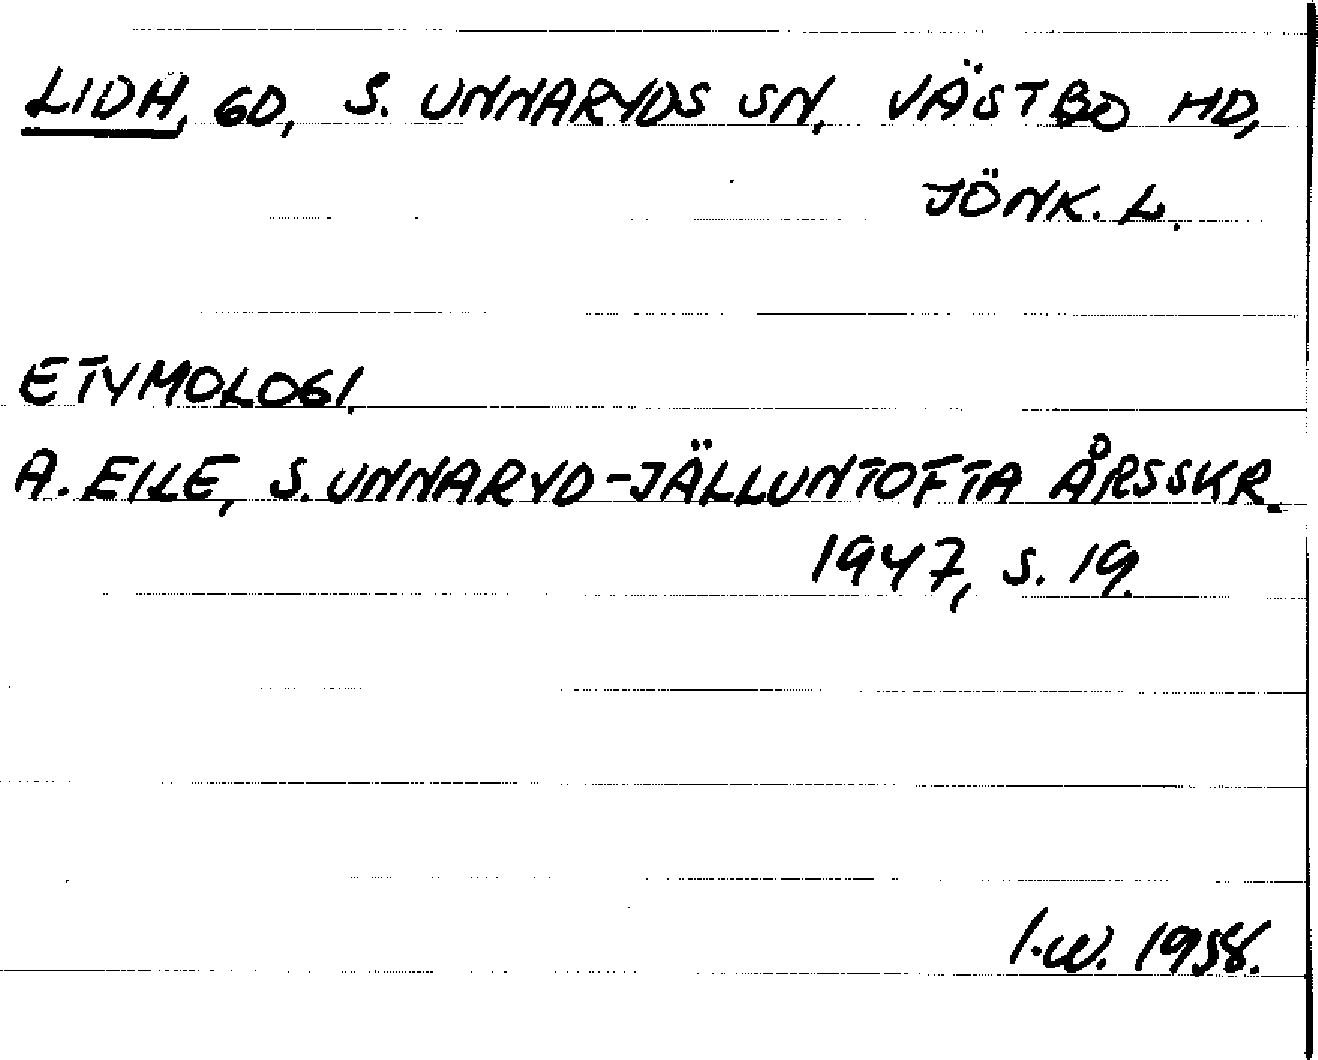 LIDH, GD, S. UNNARYDS SN, VÄSTBO HD,
JÖNK. L.
ETYMOLOGI.
A. EILE, S. UNNARYD-JÄLLUNTOFTA ÅRSSKR.
1947, S. 19.
I.W. 1958.